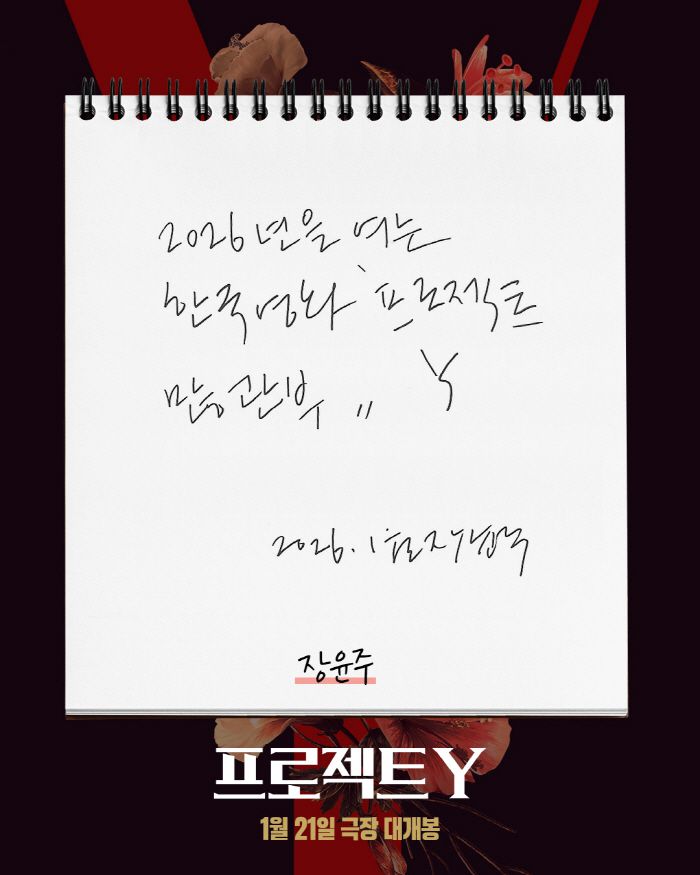 2026년을 여는
한국영화 '프로젝트
많관부 〃 Y
2026. 1
장윤주
프로젝트 Y
1월 21일 극장 대개봉